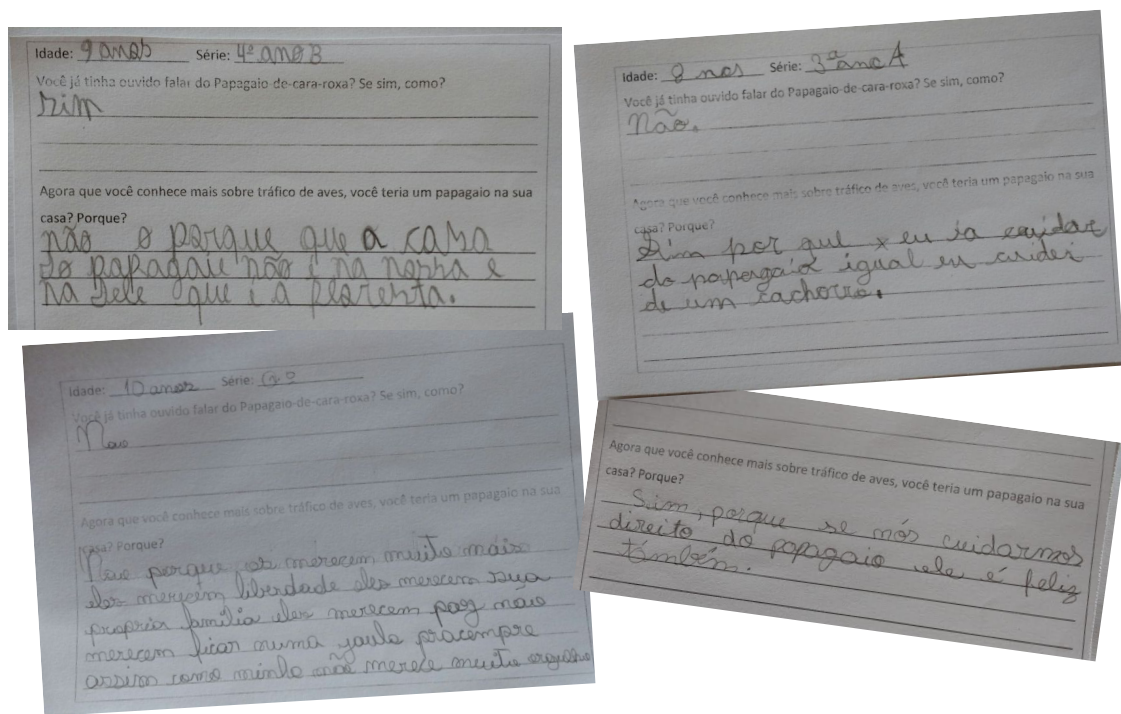 Idade: 9 anos Série: 4º ano B
Você já tinha ouvido falar do Papagaio-de-cara-roxa? Se sim, como?
sim
Agora que você conhece mais sobre tráfico de aves, você teria um papagaio na sua
casa? Porque?
não o porque que a casa
do papagaiu não i na nossa e
na dele que i a floresta.
Idade: 8 nos Série: 3ª ano A
Você já tinha ouvido falar do Papagaio-de-cara-roxa? Se sim, como?
Não.
Agora que você conhece mais sobre tráfico de aves, você teria um papagaio na sua
casa? Porque?
Sim por que x eu ia cuidar
do papergaio igual eu cuidei
de um cachorro.
Idade: 10 anos Série:
Você já tinha ouvido falar do Papagaio-de-cara-roxa? Se sim, como?
Nao
Agora que você conhece mais sobre tráfico de aves, você teria um papagaio na sua
casa? Porque?
Nao porque eles merecem muito mais
eles merecem liberdade eles merecem sua
propria familia eles merecem paz não
merecem ficar numa jaula pracempre
assim como minha mãe merece muito orgulho
Agora que você conhece mais sobre tráfico de aves, você teria um papagaio na sua
casa? Porque?
Sim, porque se nós cuidarmos
direito do papagaio ele é feliz
também.